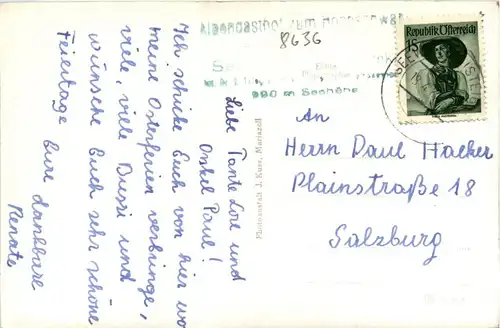 Alpengasthof zum
8636
See
990 m Seehöhe
Republik Österreich
15
SEE
Liebe Tante Lore und
Onkel Paul!
Ich schicke Euch von hier wo
meine Osterferien verbringe,
viele, viele Bussi und
wünsche Euch sehr schöne
Feiertage Eure dankbare
Renate
Photoanstalt J. Kuss, Mariazell
An
Herrn Paul Hacker
Plainstraße 18
Salzburg